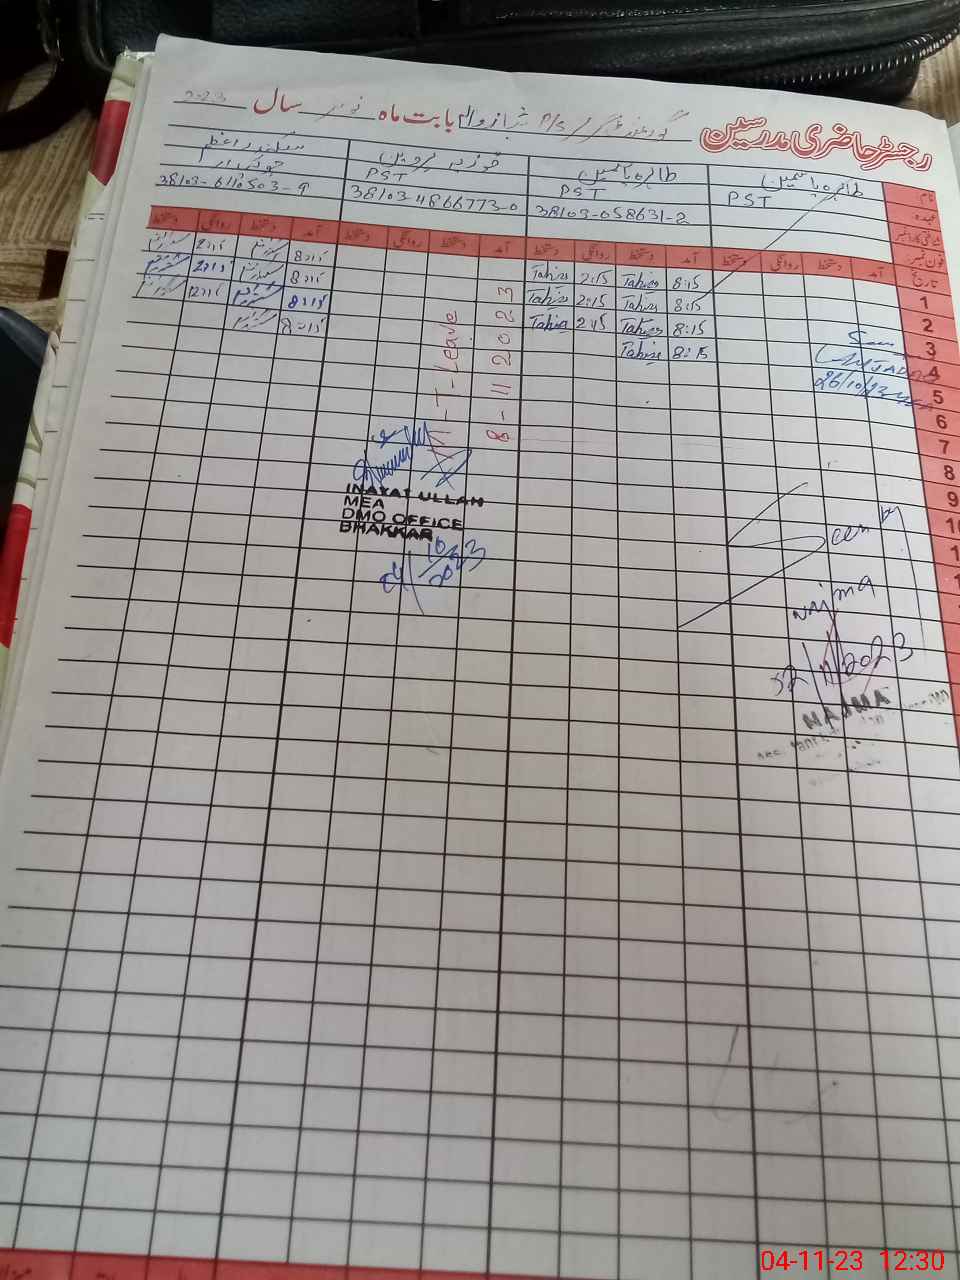 رجسٹر حاضری مدرسین
گورنمنٹ گرلز P/S شہباز والا بابت ماہ نومبر سال 2023
نام
طاہرہ یاسمین
طاہرہ یاسمین
فوزیہ پروین
سکندر اعظم
عہدہ
PST
PST
PST
چوکیدار
شناختی کارڈ نمبر
38103-058631-2
38103-4866773-0
38103-6110503-9
فون نمبر
تاریخ
آمد دستخط روانگی دستخط آمد دستخط روانگی دستخط آمد دستخط روانگی دستخط آمد دستخط روانگی دستخط
1 8:15 Tahira 2:15 Tahira 8:15 2:15
2 8:15 Tahira 2:15 Tahira 8:15 2:15
3 8:15 Tahira 2:15 Tahira 8:15 12:15
4 8:15 Tahira 8:15
5
6
7
8
9
10
M-T-Leave
8-11-2023
26/10/23
INAYAT ULLAH
MEA
DMO OFFICE
BHAKKAR
Seen by
Najma
2/11/2023
NAJMA
04-11-23 12:30